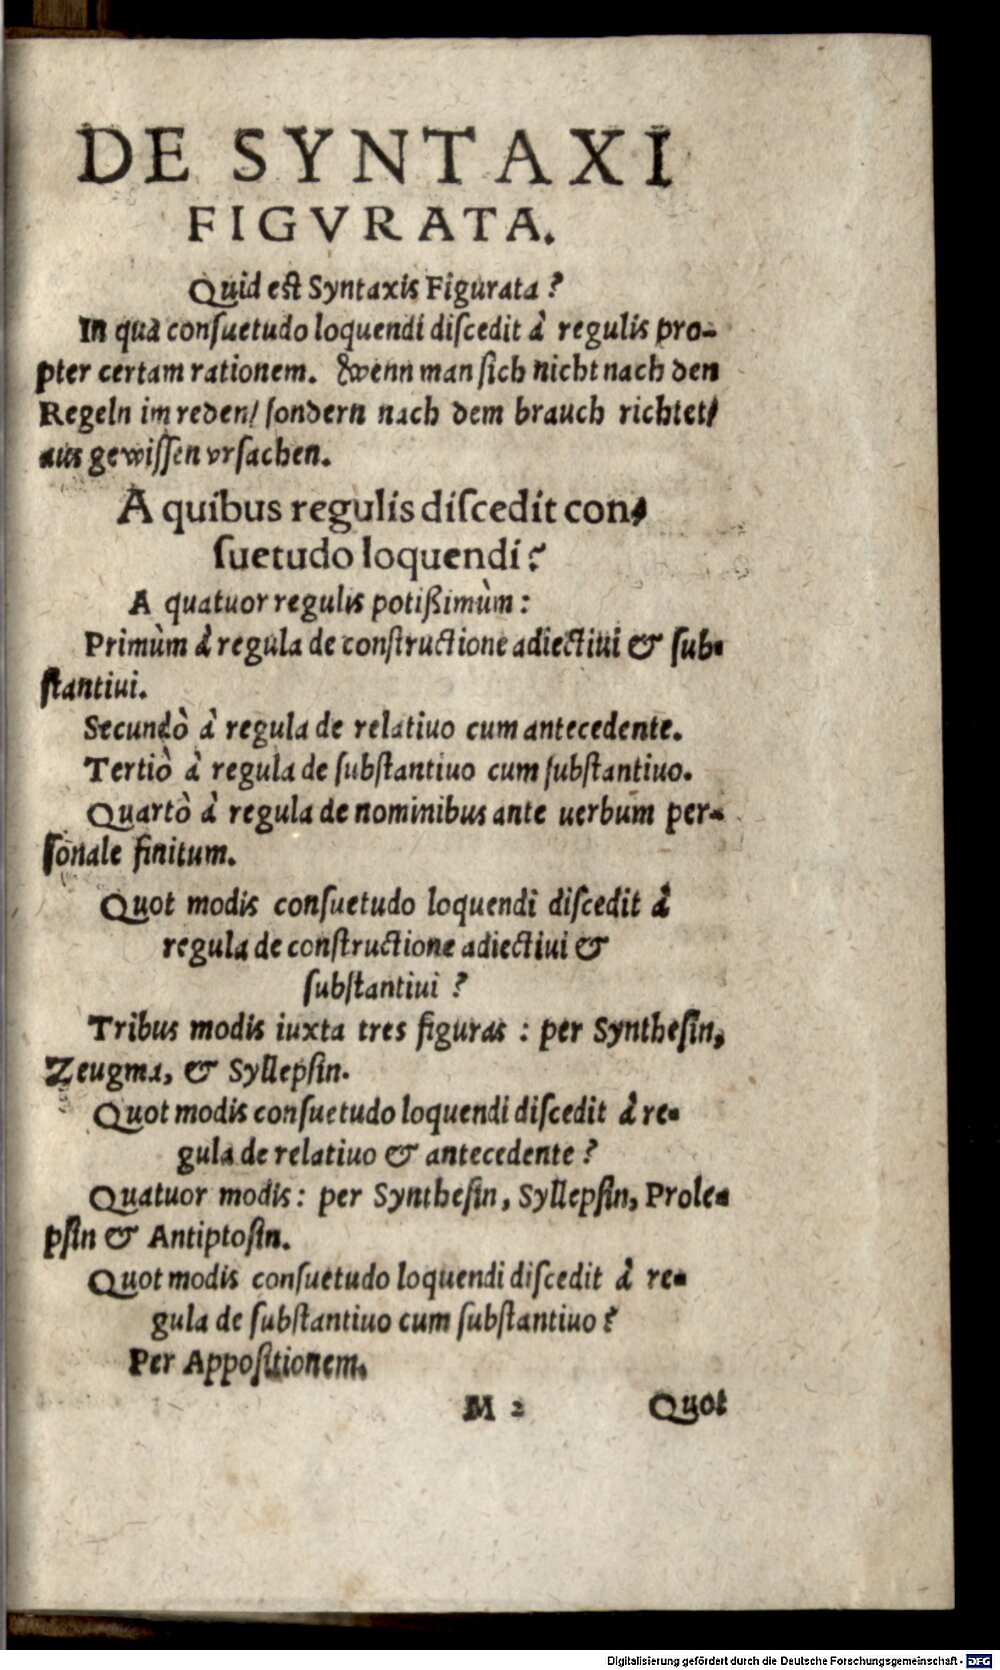 DE SYNTAXI
FIGVRATA.
Quid est Syntaxis Figurata?
In qua consuetudo loquendi discedit à regulis pro-
pter certam rationem. Wenn man sich nicht nach den
Regeln im reden/ sondern nach dem brauch richtet/
aus gewissen vrsachen.
A quibus regulis discedit con-
suetudo loquendi?
A quatuor regulis potißimùm:
Primùm à regula de constructione adiectiui & sub-
stantiui.
Secundò à regula de relatiuo cum antecedente.
Tertiò à regula de substantiuo cum substantiuo.
Quartò à regula de nominibus ante uerbum per-
sonale finitum.
Quot modis consuetudo loquendi discedit à
regula de constructione adiectiui &
substantiui?
Tribus modis iuxta tres figuras: per Synthesin,
Zeugma, & Syllepsin.
Quot modis consuetudo loquendi discedit à re-
gula de relatiuo & antecedente?
Quatuor modis: per Synthesin, Syllepsin, Prole-
psin & Antiptosin.
Quot modis consuetudo loquendi discedit à re-
gula de substantiuo cum substantiuo?
Per Appositionem.
M 2 Quot
Digitalisierung gefördert durch die Deutsche Forschungsgemeinschaft - DFG